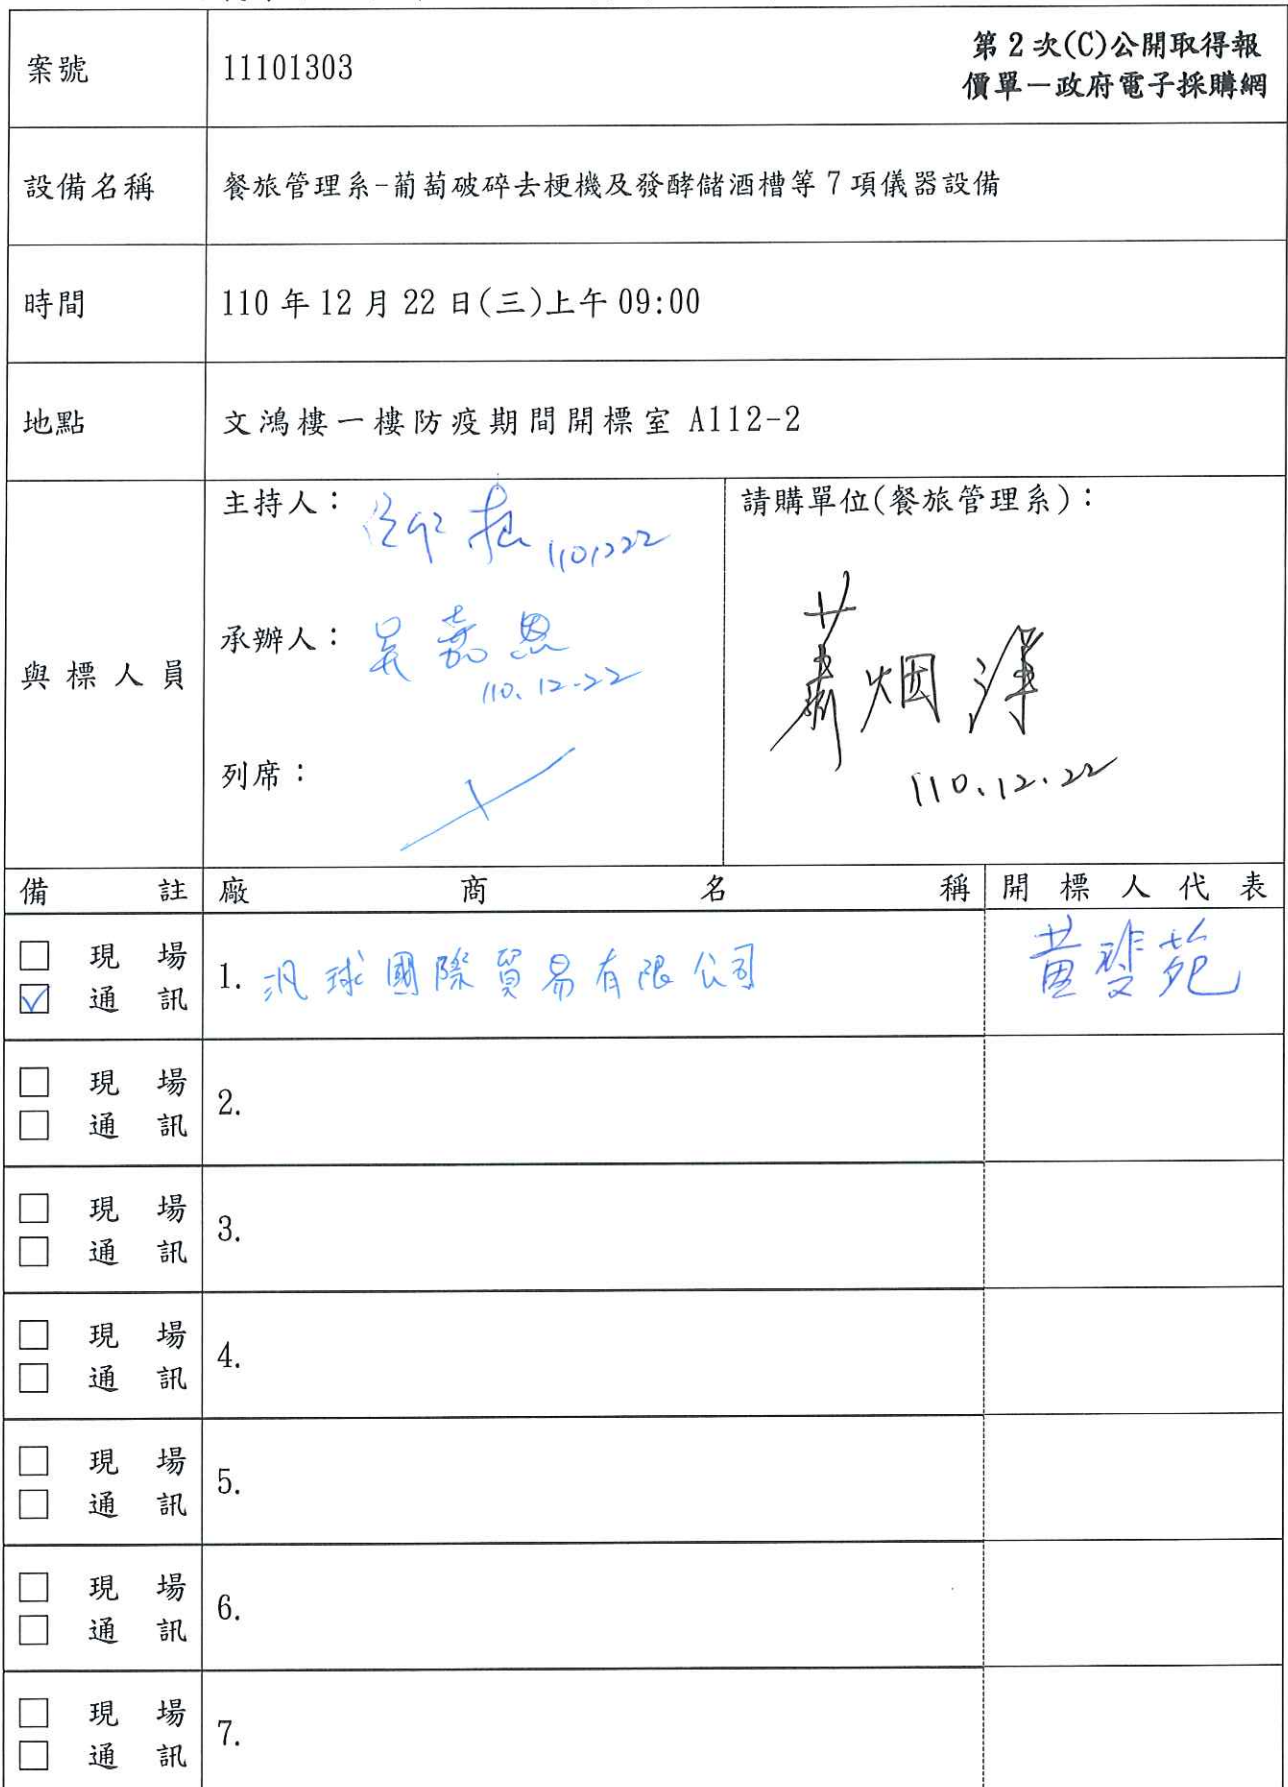 案號
11101303
第2次(C)公開取得報
價單－政府電子採購網
設備名稱
餐旅管理系-葡萄破碎去梗機及發酵儲酒槽等7項儀器設備
時間
110年12月22日(三)上午09:00
地點
文鴻樓一樓防疫期間開標室 A112-2
與標人員
主持人：
1101222
承辦人：吳嘉恩
110.12.22
列席：
請購單位(餐旅管理系)：
110.12.22
備註 廠商名稱 開標人代表
□ 現場
☑ 通訊
1. 汎球國際貿易有限公司
□ 現場
□ 通訊
2.
□ 現場
□ 通訊
3.
□ 現場
□ 通訊
4.
□ 現場
□ 通訊
5.
□ 現場
□ 通訊
6.
□ 現場
□ 通訊
7.